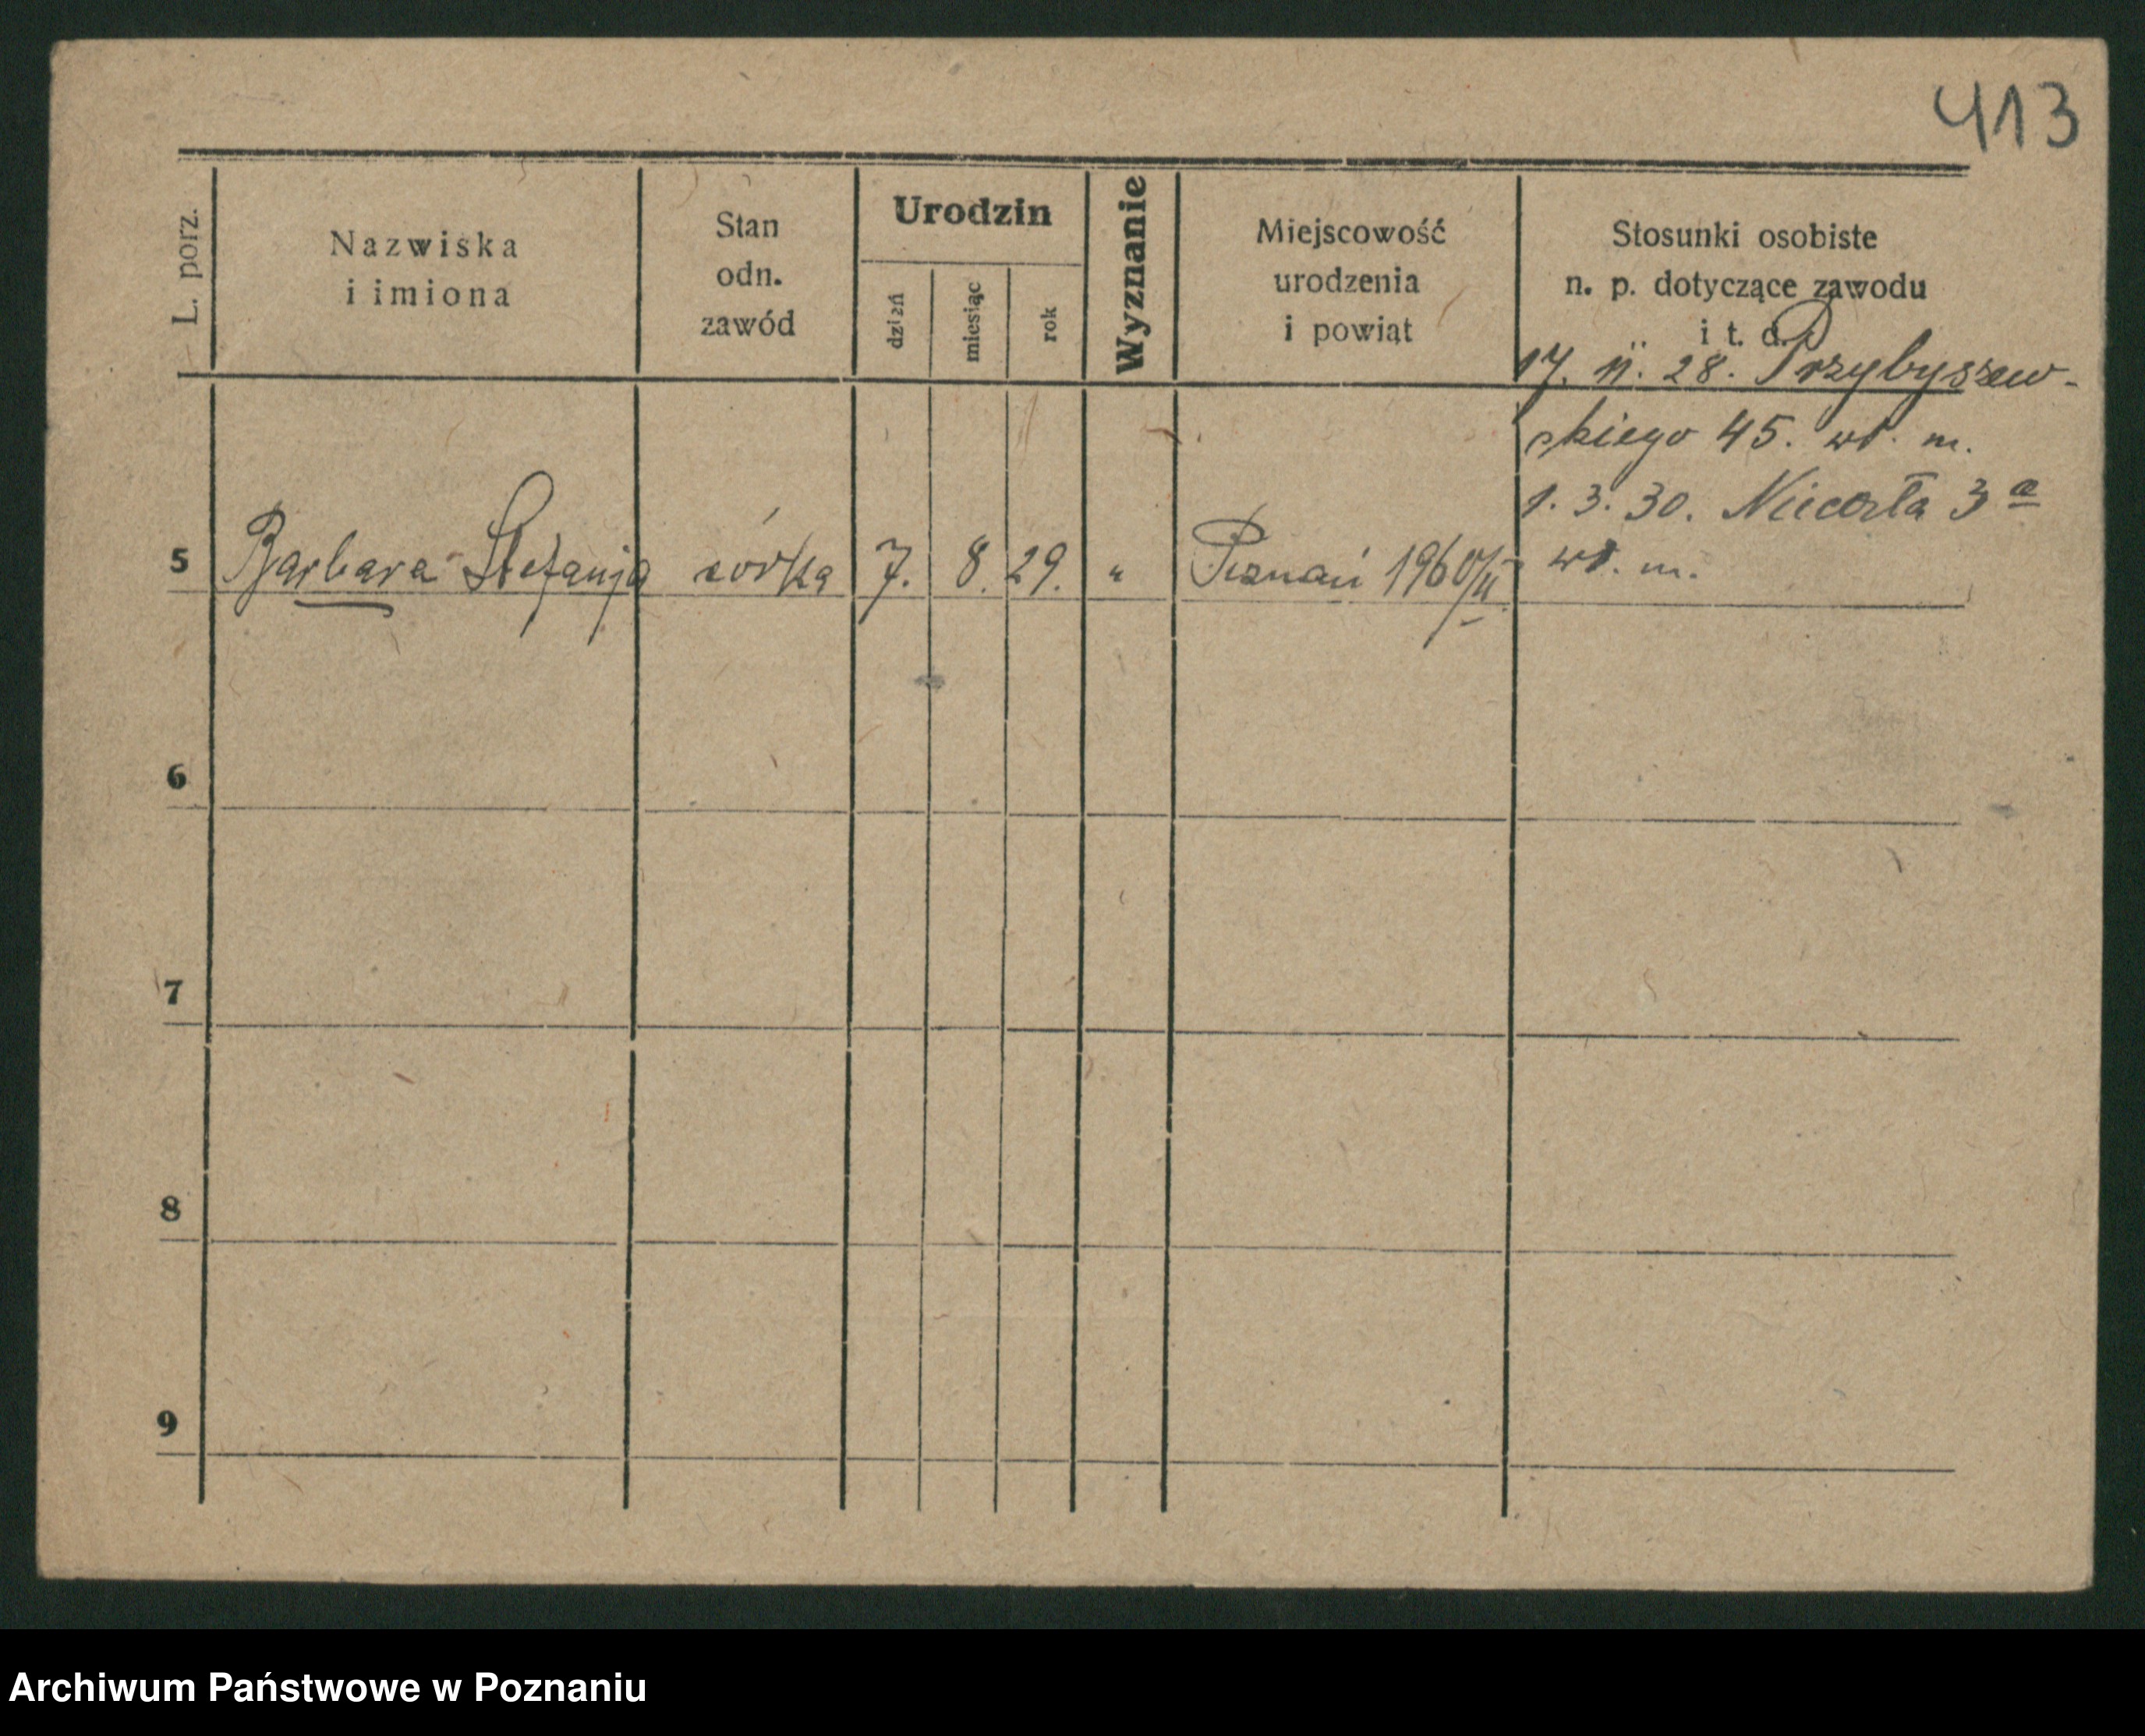 413
L. porz.
Nazwiska
i imiona
Stan
odn.
zawód
Urodzin
dzień
miesiąc
rok
Wyznanie
Miejscowość
urodzenia
i powiąt
Stosunki osobiste
n. p. dotyczące zawodu
i t. d.
17. 11. 28. Przybyszew-
skiego 45. wł. m.
1. 3. 30. Niecała 3 a
wł. m.
5 Barbara Stefanja córka 7. 8. 29. " Poznań 1960/II
6
7
8
9
Archiwum Państwowe w Poznaniu